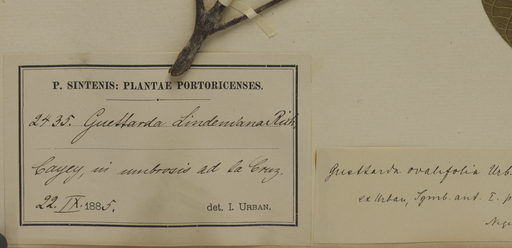 P. SINTENIS: PLANTAE PORTORICENSES.
2435. Guettarda Lindeniana Rich.
Cayey, in umbrosis ad la Cruz.
22. IX. 1885. det. I. URBAN.
Guettarda ovalifolia Urb.
ex Urban, Symb. ant. I. p